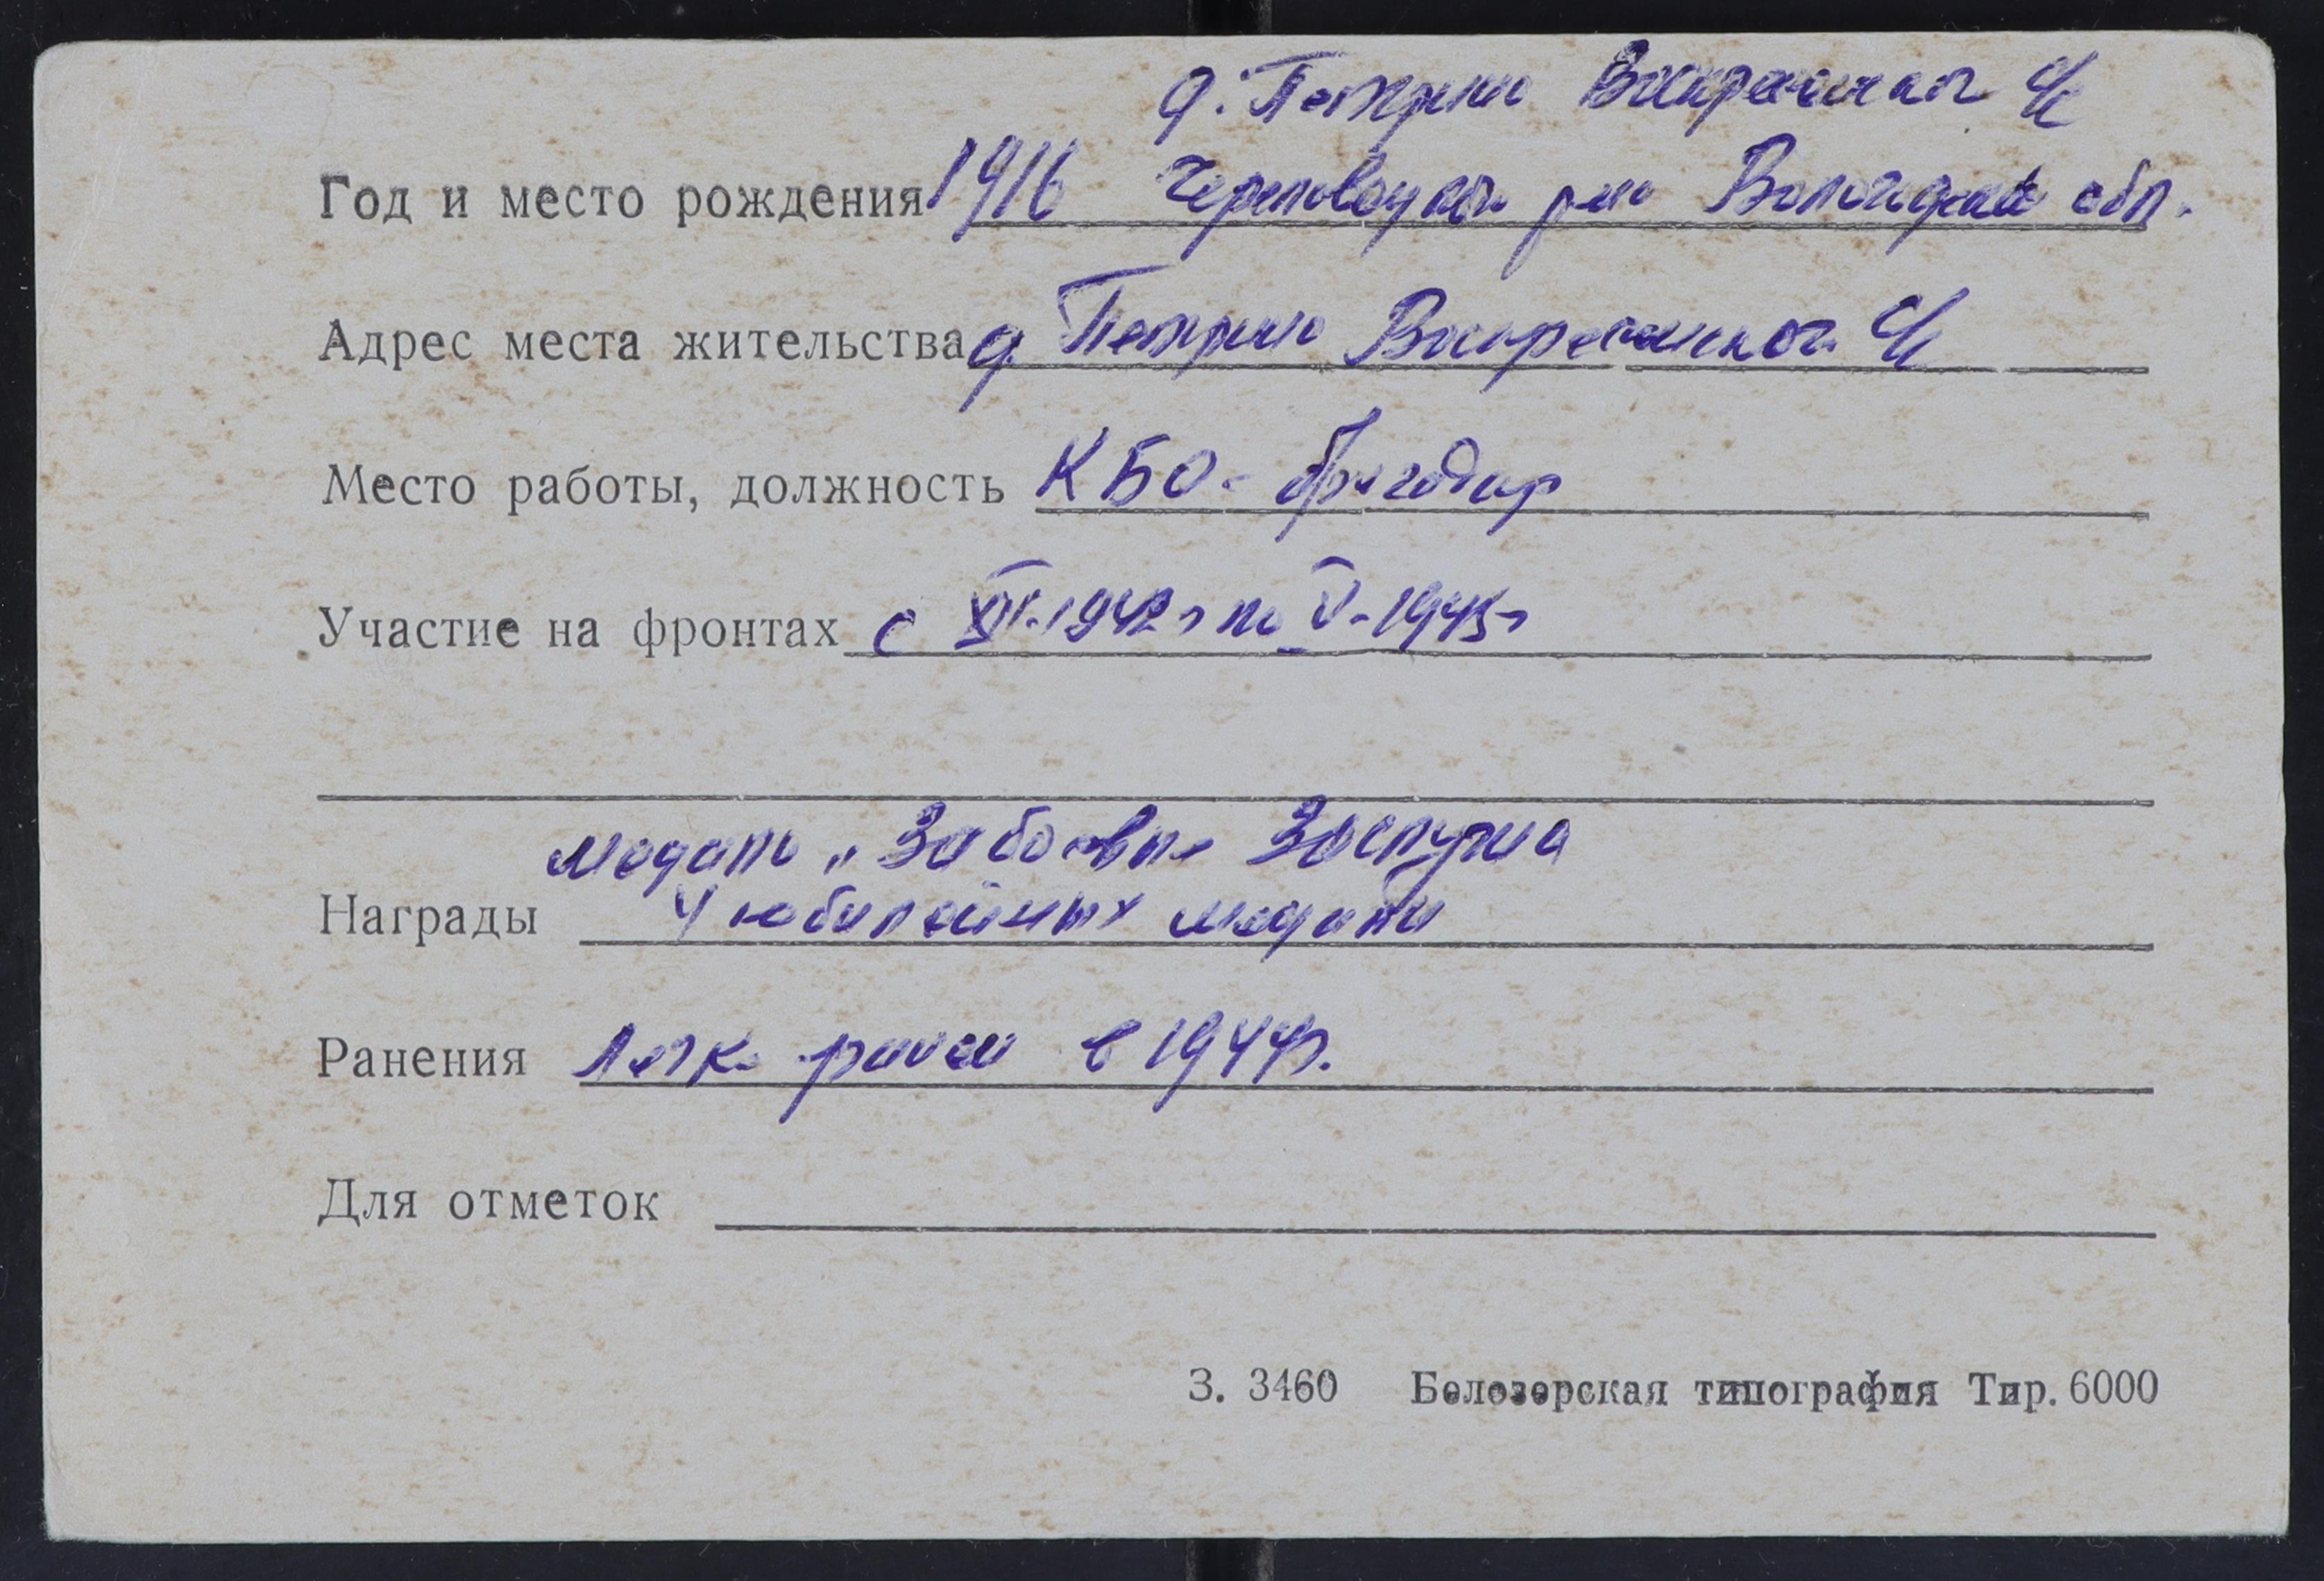 д. Петрино Воскресенског с/с
Год и место рождения 1916 Череповецког р-но Вологодской обл.
Адрес места жительства д Петрино Воскресенског с/с
Место работы, должность КБО - бригадир
Участие на фронтах с XII-1942г по V-1945г
медаль „За боевые Заслуги
Награды 4 юбилейных медали
Ранения Легко ранен в 1944г.
Для отметок
З. 3460 Белозерская типография Тир. 6000